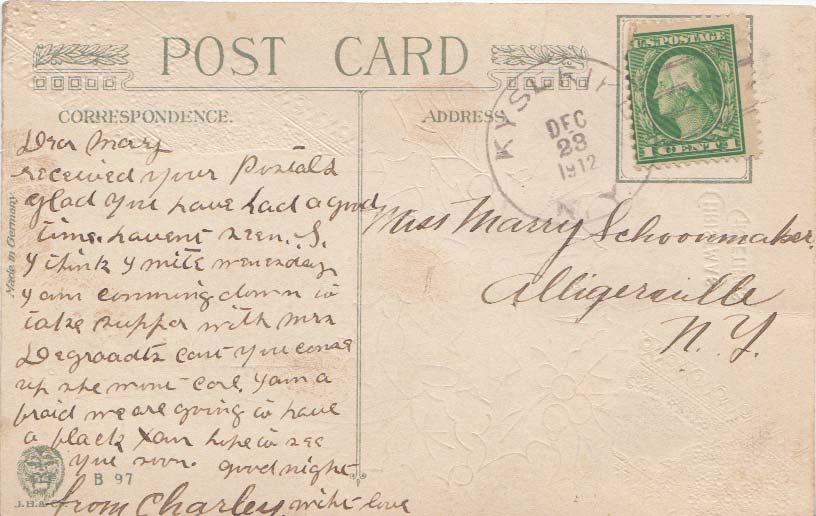 POST CARD
CORRESPONDENCE.
Dear Mary
received your Postals
glad you have had a good
time. havent seen. S.
y think y mite wenesday
y am comming down to
take supper with mrs
Degroadts cant you come
up she wont care. yam a
fraid we are going to have
a black Xam hope to see
you soon. good night
from Charley, with love
Made in Germany
B 97
J.H.&
ADDRESS
KYSERIKE
DEC
23
1912
N.Y.
U.S. POSTAGE
1 CENT 1
Miss Marry Schoonmaker.
Alligerville
N.Y.